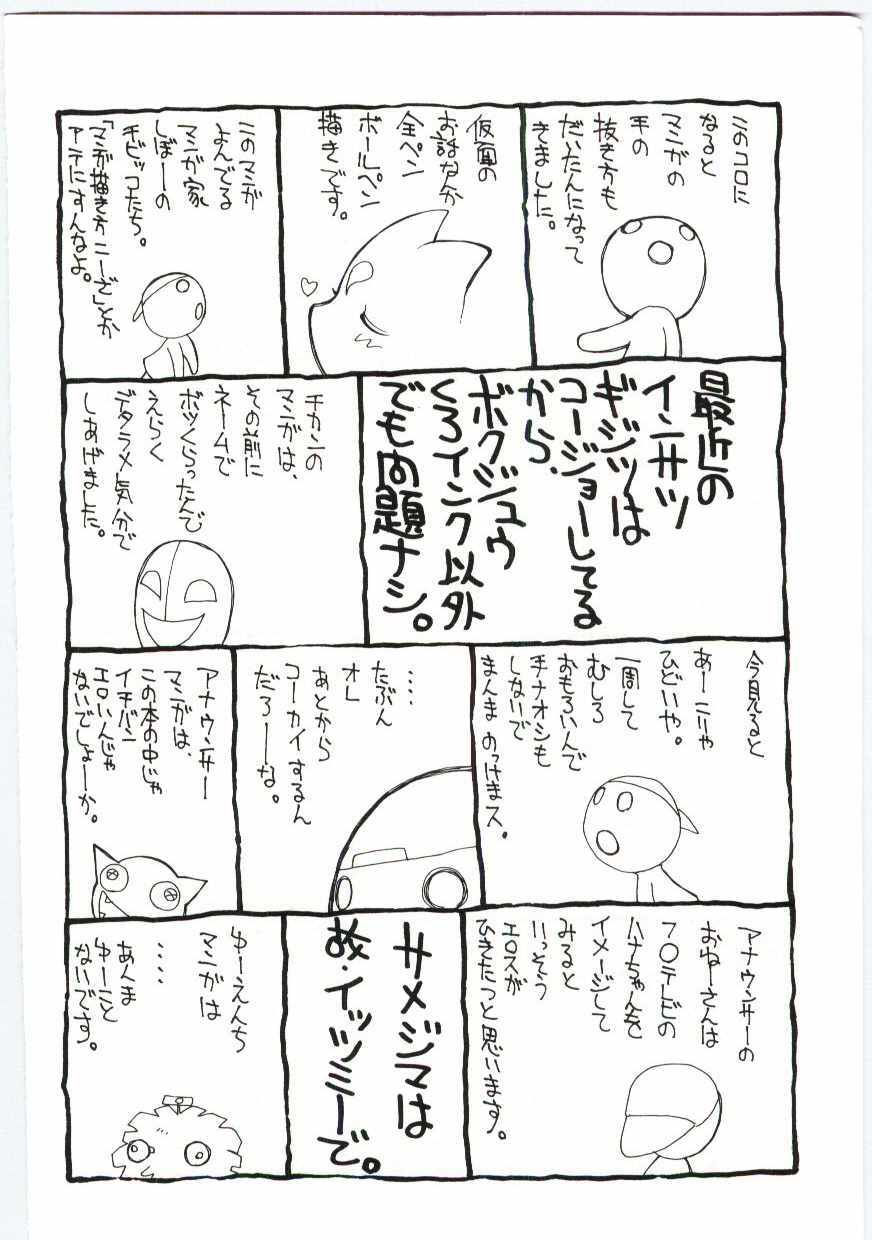 このコロに
なると
マンガの
手の
抜き方も
だいたんになって
きました。
仮面の
お話なんか
全ペン
ボールペン
描きです。
このマンガ
よんでる
マンガ家
しぼーの
チビッコたち。
「マンガ描き方こーざ」とか
アテにすんなよ。
最近の
インサツ
ギジツは
コージョーしてる
から、
ボクジュウ
くろインク以外
でも問題ナシ。
チカンの
マンガは、
その前に
ネームで
ボツくらったんで
えらく
デタラメ気分で
しあげました。
今見ると
あーこりゃ
ひどいや。
一周して
むしろ
おもろいんで
手ナオシも
しないで
まんまのっけまス。
‥‥
たぶん
オレ
あとから
コーカイするん
だろーな。
アナウンサー
マンガは、
この本の中じゃ
イチバン
エロいんじゃ
ないでしょーか。
アナウンサーの
おねーさんは
フ〇テレビの
ハナちゃんを
イメージして
みると
いっそう
エロスが
ひきたつと思います。
サメジマは
故・イッツミーで。
ゆーえんち
マンガは
‥‥
あんま
ゆーこと
ないです。